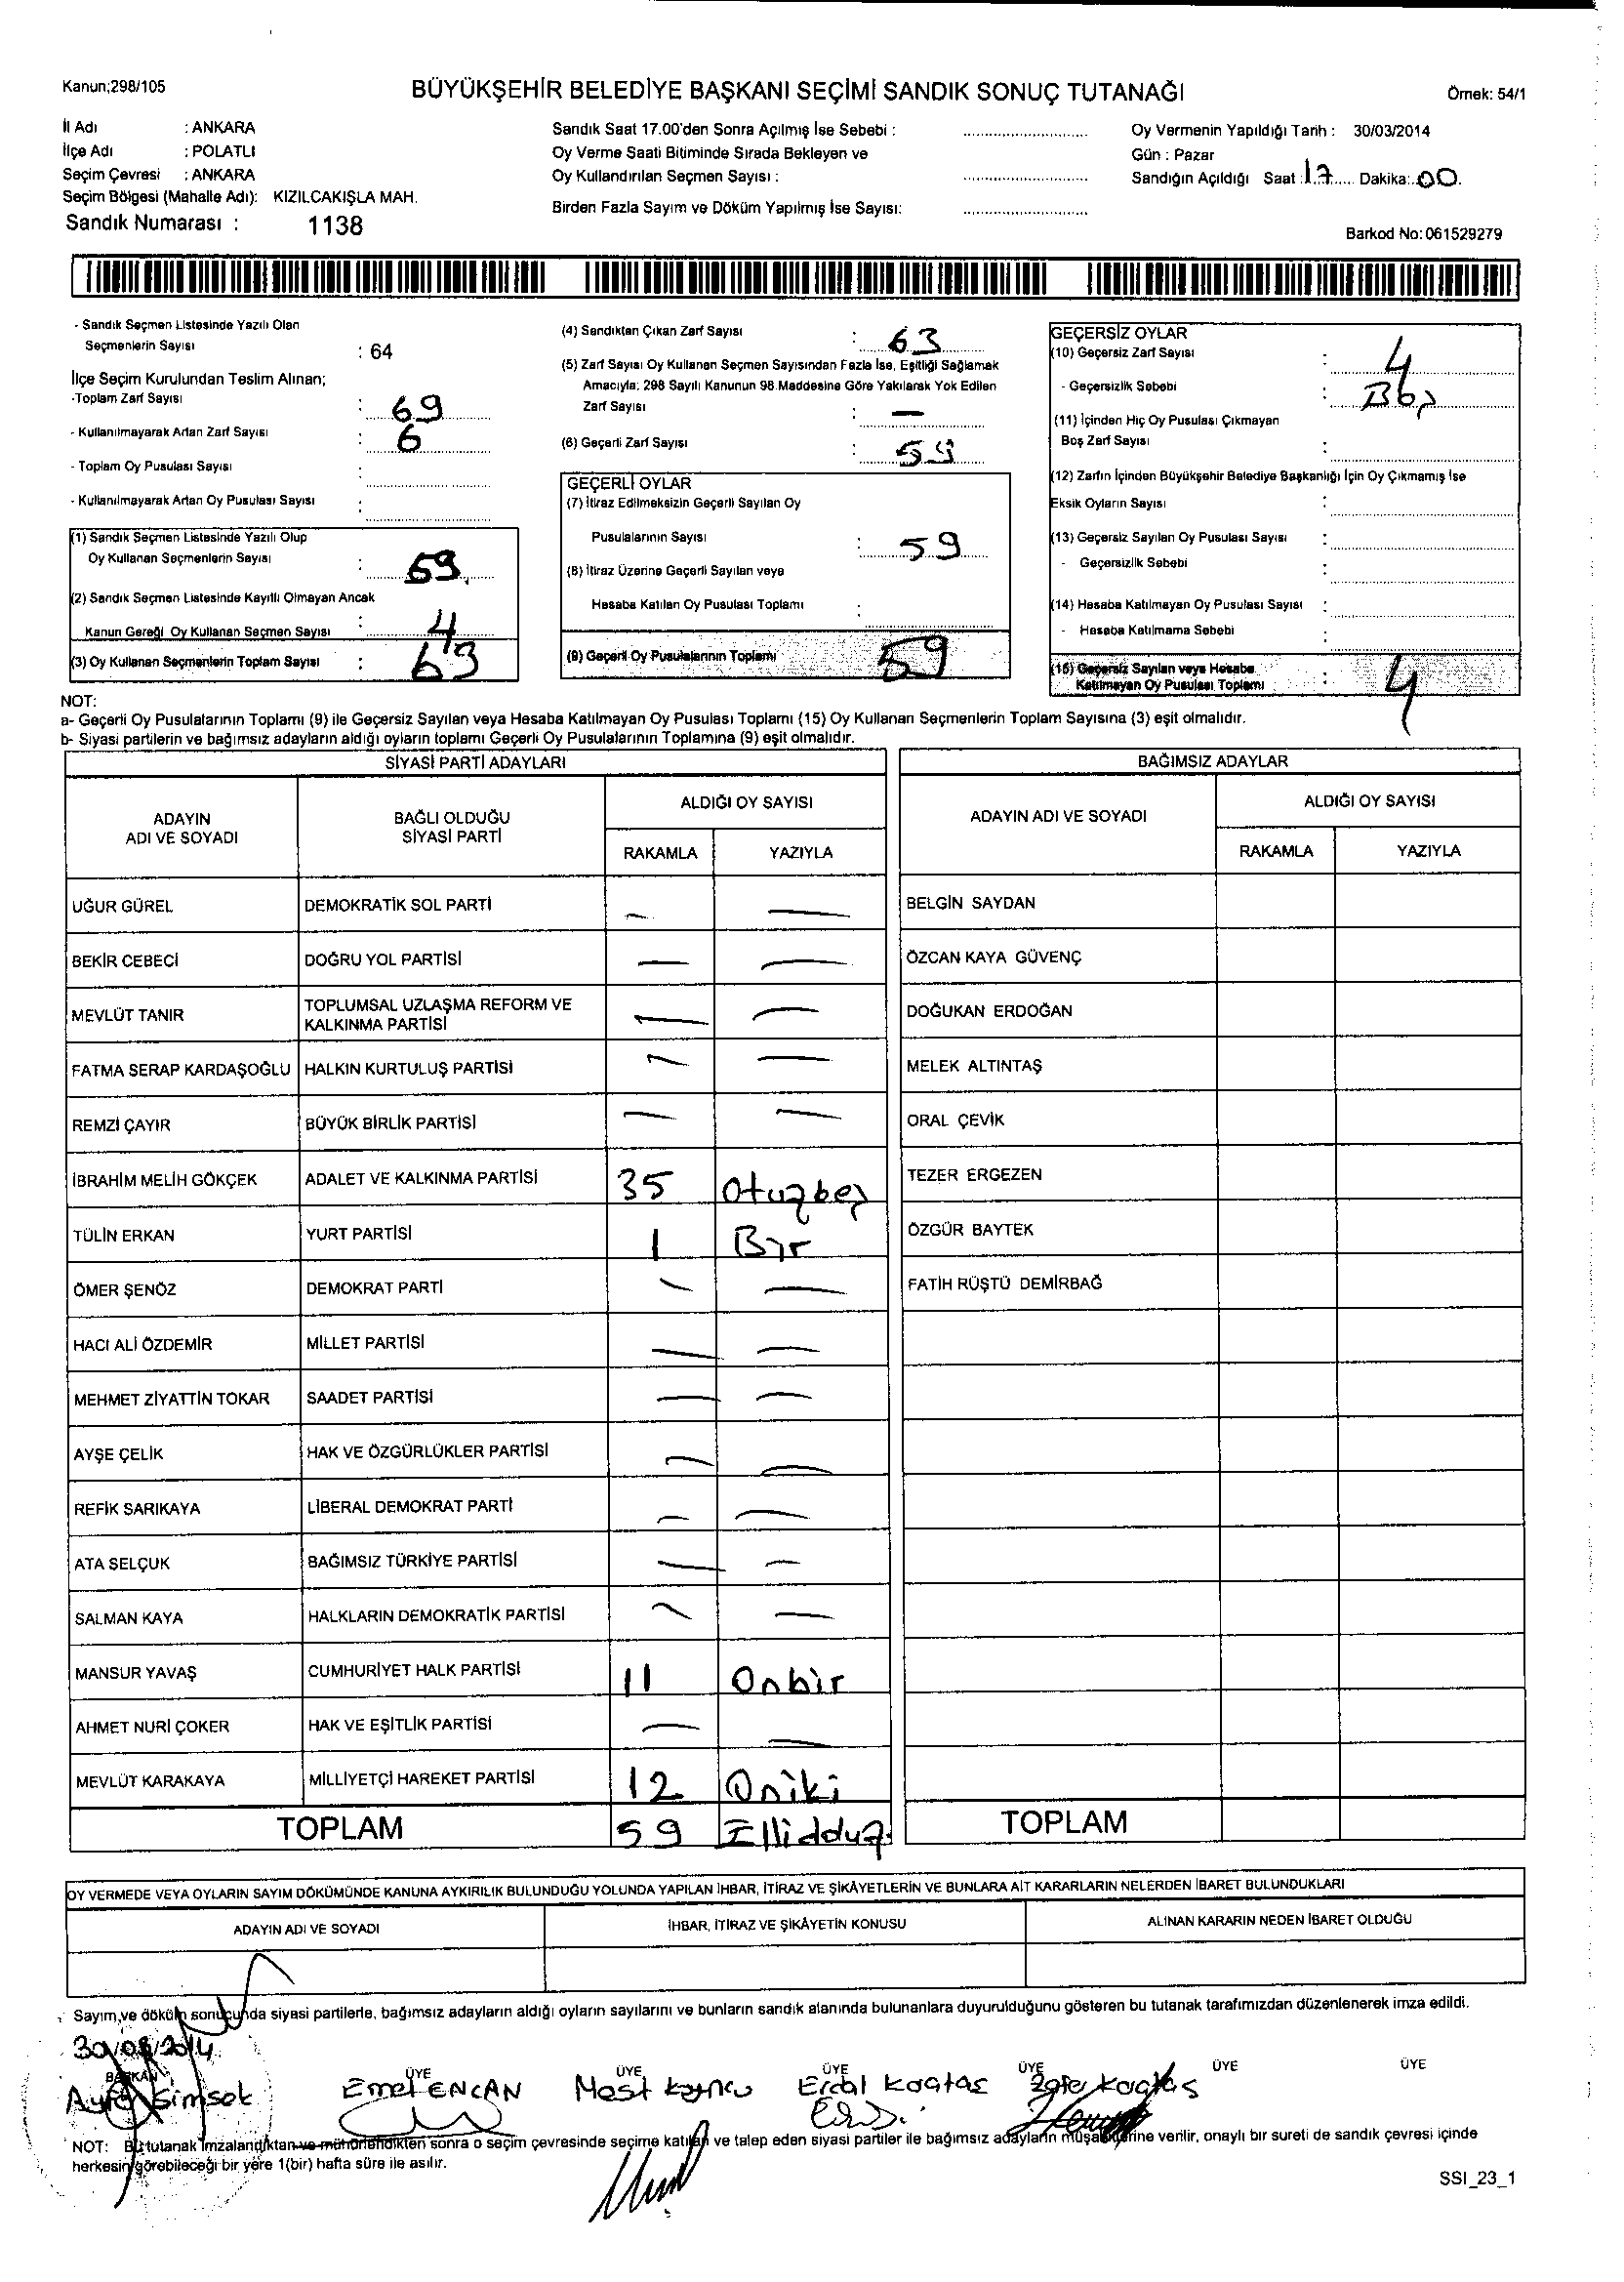 Kanun;298/105
BÜYÜKŞEHİR BELEDİYE BAŞKANI SEÇİMİ SANDIK SONUÇ TUTANAĞI
Örnek: 54/1
İl Adı : ANKARA
İlçe Adı : POLATLI
Seçim Çevresi : ANKARA
Seçim Bölgesi (Mahalle Adı): KIZILCAKIŞLA MAH.
Sandık Numarası : 1138
Sandık Saat 17.00'den Sonra Açılmış İse Sebebi :
Oy Verme Saati Bitiminde Sırada Bekleyen ve
Oy Kullandırılan Seçmen Sayısı :
Birden Fazla Sayım ve Döküm Yapılmış İse Sayısı:
Oy Vermenin Yapıldığı Tarih : 30/03/2014
Gün : Pazar
Sandığın Açıldığı Saat : 17 Dakika: 00
Barkod No: 061529279
- Sandık Seçmen Listesinde Yazılı Olan
Seçmenlerin Sayısı : 64
İlçe Seçim Kurulundan Teslim Alınan;
-Toplam Zarf Sayısı : 69
- Kullanılmayarak Artan Zarf Sayısı : 6
- Toplam Oy Pusulası Sayısı :
- Kullanılmayarak Artan Oy Pusulası Sayısı :
(1) Sandık Seçmen Listesinde Yazılı Olup
Oy Kullanan Seçmenlerin Sayısı : 59
(2) Sandık Seçmen Listesinde Kayıtlı Olmayan Ancak
Kanun Gereği Oy Kullanan Seçmen Sayısı : 4
(3) Oy Kullanan Seçmenlerin Toplam Sayısı : 63
(4) Sandıktan Çıkan Zarf Sayısı : 63
(5) Zarf Sayısı Oy Kullanan Seçmen Sayısından Fazla İse, Eşitliği Sağlamak
Amacıyla; 298 Sayılı Kanunun 98.Maddesine Göre Yakılarak Yok Edilen
Zarf Sayısı : —
(6) Geçerli Zarf Sayısı : 59
GEÇERLİ OYLAR
(7) İtiraz Edilmeksizin Geçerli Sayılan Oy
Pusulalarının Sayısı : 59
(8) İtiraz Üzerine Geçerli Sayılan veya
Hesaba Katılan Oy Pusulası Toplamı :
(9) Geçerli Oy Pusulalarının Toplamı 59
GEÇERSİZ OYLAR
(10) Geçersiz Zarf Sayısı : 4
- Geçersizlik Sebebi :
(11) İçinden Hiç Oy Pusulası Çıkmayan
Boş Zarf Sayısı :
(12) Zarfın İçinden Büyükşehir Belediye Başkanlığı İçin Oy Çıkmamış İse
Eksik Oyların Sayısı :
(13) Geçersiz Sayılan Oy Pusulası Sayısı :
- Geçersizlik Sebebi :
(14) Hesaba Katılmayan Oy Pusulası Sayısı :
- Hesaba Katılmama Sebebi :
(15) Geçersiz Sayılan veya Hesaba
Katılmayan Oy Pusulası Toplamı : 4
NOT:
a- Geçerli Oy Pusulalarının Toplamı (9) ile Geçersiz Sayılan veya Hesaba Katılmayan Oy Pusulası Toplamı (15) Oy Kullanan Seçmenlerin Toplam Sayısına (3) eşit olmalıdır.
b- Siyasi partilerin ve bağımsız adayların aldığı oyların toplamı Geçerli Oy Pusulalarının Toplamına (9) eşit olmalıdır.
SİYASİ PARTİ ADAYLARI
ADAYIN ADI VE SOYADI
BAĞLI OLDUĞU SİYASİ PARTİ
ALDIĞI OY SAYISI
RAKAMLA YAZIYLA
UĞUR GÜREL DEMOKRATİK SOL PARTİ — —
BEKİR CEBECİ DOĞRU YOL PARTİSİ — —
MEVLÜT TANIR TOPLUMSAL UZLAŞMA REFORM VE KALKINMA PARTİSİ — —
FATMA SERAP KARDAŞOĞLU HALKIN KURTULUŞ PARTİSİ — —
REMZİ ÇAYIR BÜYÜK BİRLİK PARTİSİ — —
İBRAHİM MELİH GÖKÇEK ADALET VE KALKINMA PARTİSİ 35 Otuzbeş
TÜLİN ERKAN YURT PARTİSİ 1 Bir
ÖMER ŞENÖZ DEMOKRAT PARTİ — —
HACI ALİ ÖZDEMİR MİLLET PARTİSİ — —
MEHMET ZİYATTİN TOKAR SAADET PARTİSİ — —
AYŞE ÇELİK HAK VE ÖZGÜRLÜKLER PARTİSİ — —
REFİK SARIKAYA LİBERAL DEMOKRAT PARTİ — —
ATA SELÇUK BAĞIMSIZ TÜRKİYE PARTİSİ — —
SALMAN KAYA HALKLARIN DEMOKRATİK PARTİSİ — —
MANSUR YAVAŞ CUMHURİYET HALK PARTİSİ 11 Onbir
AHMET NURİ ÇOKER HAK VE EŞİTLİK PARTİSİ — —
MEVLÜT KARAKAYA MİLLİYETÇİ HAREKET PARTİSİ 12 Oniki
TOPLAM 59 Ellidduz
BAĞIMSIZ ADAYLAR
ADAYIN ADI VE SOYADI
ALDIĞI OY SAYISI
RAKAMLA YAZIYLA
BELGİN SAYDAN
ÖZCAN KAYA GÜVENÇ
DOĞUKAN ERDOĞAN
MELEK ALTINTAŞ
ORAL ÇEVİK
TEZER ERGEZEN
ÖZGÜR BAYTEK
FATİH RÜŞTÜ DEMİRBAĞ
TOPLAM
OY VERMEDE VEYA OYLARIN SAYIM DÖKÜMÜNDE KANUNA AYKIRILIK BULUNDUĞU YOLUNDA YAPILAN İHBAR, İTİRAZ VE ŞİKÂYETLERİN VE BUNLARA AİT KARARLARIN NELERDEN İBARET BULUNDUKLARI
ADAYIN ADI VE SOYADI
İHBAR, İTİRAZ VE ŞİKÂYETİN KONUSU
ALINAN KARARIN NEDEN İBARET OLDUĞU
Sayım ve döküm sonucunda siyasi partilerle, bağımsız adayların aldığı oyların sayılarını ve bunların sandık alanında bulunanlara duyurulduğunu gösteren bu tutanak tarafımızdan düzenlenerek imza edildi.
30/03/2014
BAŞKAN ÜYE ÜYE ÜYE ÜYE ÜYE ÜYE
Şimşek Emel ENCAN Erdal Kogtas
NOT: Bu tutanak imzalandıktan ve mühürlendikten sonra o seçim çevresinde seçime katılan ve talep eden siyasi partiler ile bağımsız adayların müşahitlerine verilir, onaylı bir sureti de sandık çevresi içinde
herkesin görebileceği bir yere 1(bir) hafta süre ile asılır.
SSI_23_1